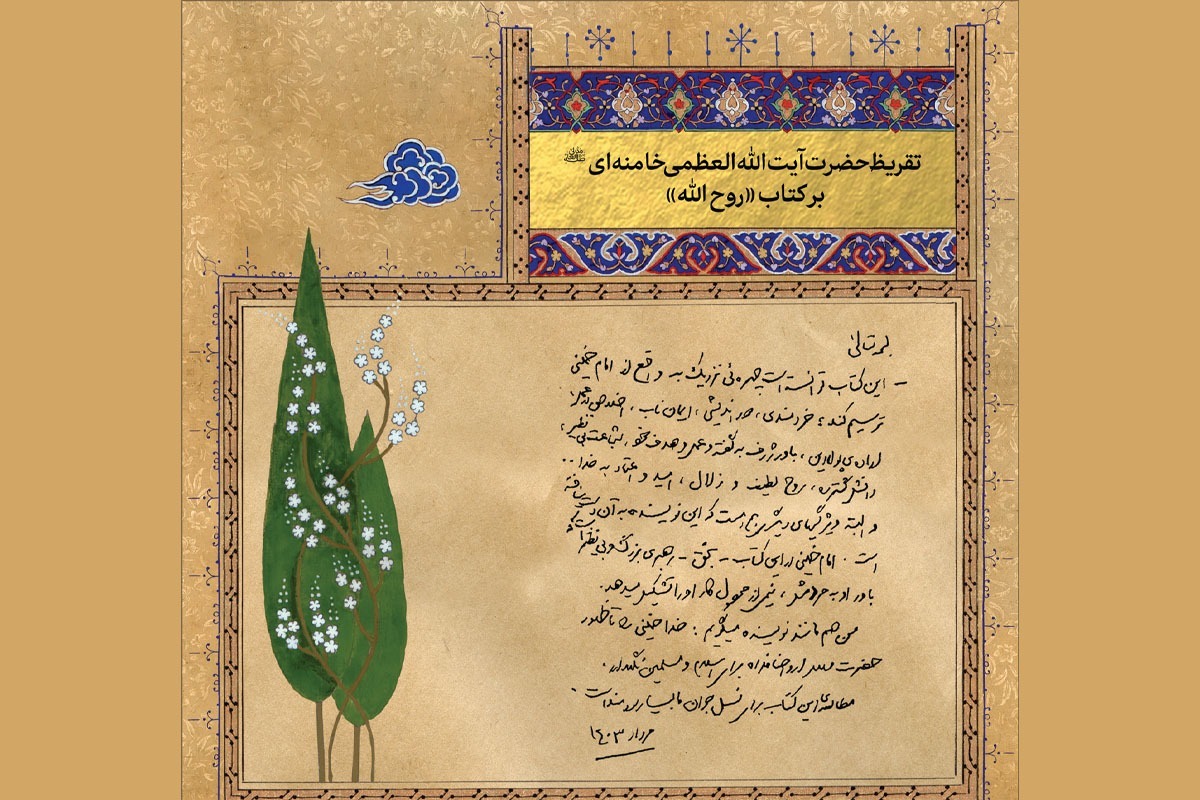 تقریظ حضرت آیت الله العظمی خامنه‌ای
بر کتاب «روح الله»
بسمه‌تعالی
- این کتاب توانسته است چهره‌ئی نزدیک به واقع از امام خمینی
ترسیم کند؛ خردمندی، دوراندیشی، ایمان ناب، اخلاص در عمل،
اراده‌ی پولادین، باور ژرف به گفته و عمل و هدف خود، شجاعت بی‌نظیر،
دانش گسترده، روح لطیف و زلال، امید و اعتماد به خدا ..
و البته ویژگیهای دیگری نیز هست که این نویسنده به آن دست نیافته
است. امام خمینی در این کتاب - بحق - رهبری بزرگ و بی‌نظیر است
باور او به مردمش، نیمی از محصول کار او را تشکیل میدهد.
من هم مانند نویسنده میگویم: خدا خمینی را تا ظهور
حضرت مهدی ارواحنا فداه برای اسلام و مسلمین نگهدارد.
مطالعه‌ی این کتاب برای نسل جوان ما بسیار سودمند است.
مرداد ۱۴۰۳